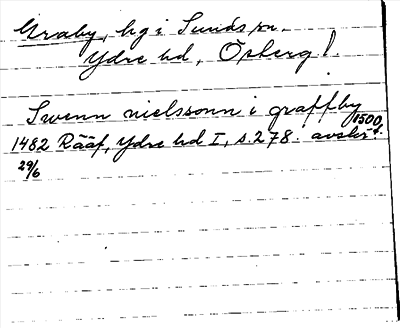 Graby, hg i Sunds sn.
Ydre hd, Östergl.
Swenn nielssonn i graffby
1482 Rääf, Ydre hd I, s. 278. avskr. 1500
29/6